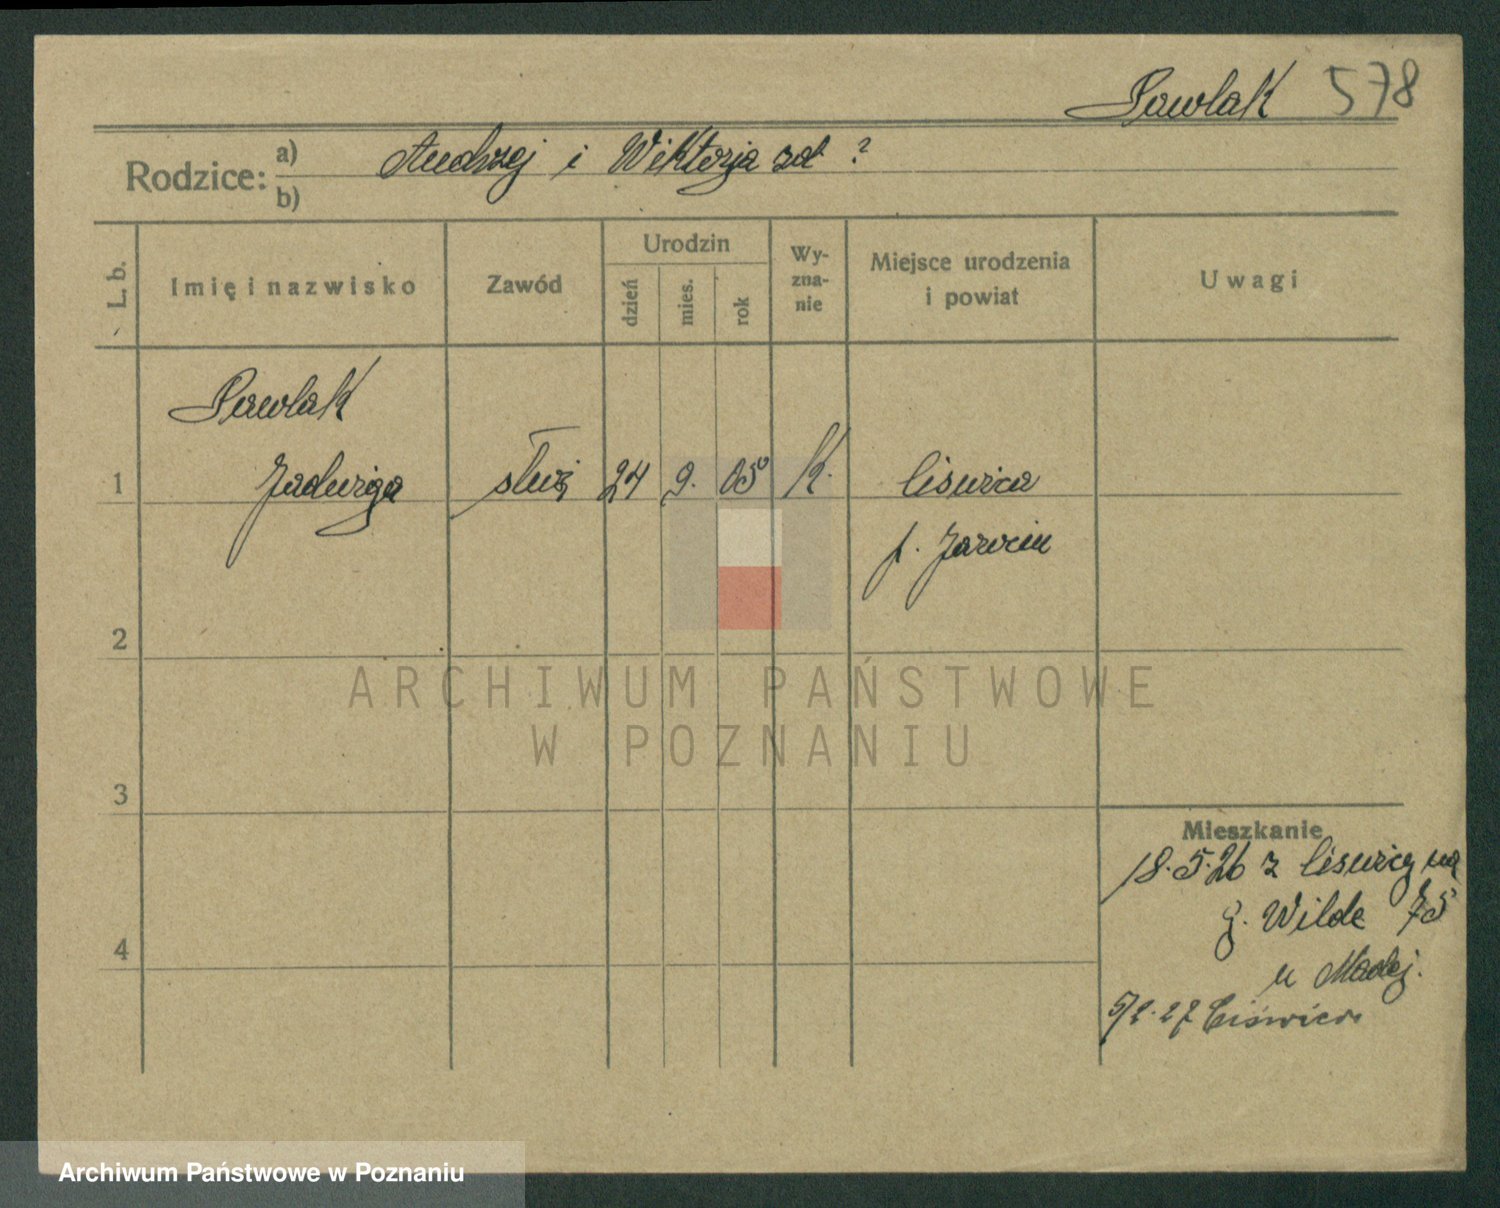 Pawlak 578
Rodzice: a) Andrzej i Wiktorja zd ?
b)
L. b.
Imię i nazwisko
Zawód
Urodzin
dzień
mies.
rok
Wy-
zna-
nie
Miejsce urodzenia
i powiat
Uwagi
Pawlak
1 Jadwiga służ 24 9. 05 k. Liswica
p. Jarocin
2
ARCHIWUM PAŃSTWOWE
W POZNANIU
3
Mieszkanie
18.5.26 z Liswicy na
g. Wilde 75
4
u Madej.
5/2.27 Ciświca
Archiwum Państwowe w Poznaniu